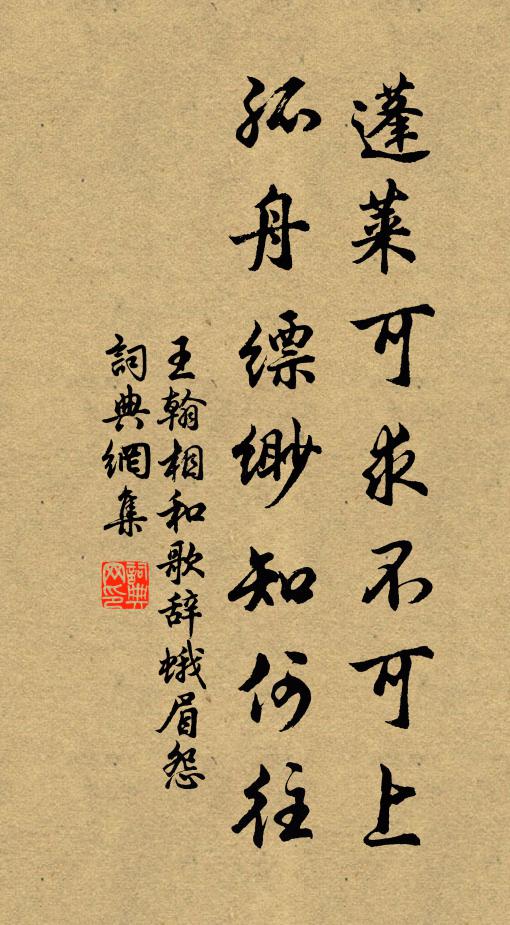 蓬莱可求不可上
孤舟缥缈知何往
王翰相和歌辞蛾眉怨
詞典網集
詞典網印